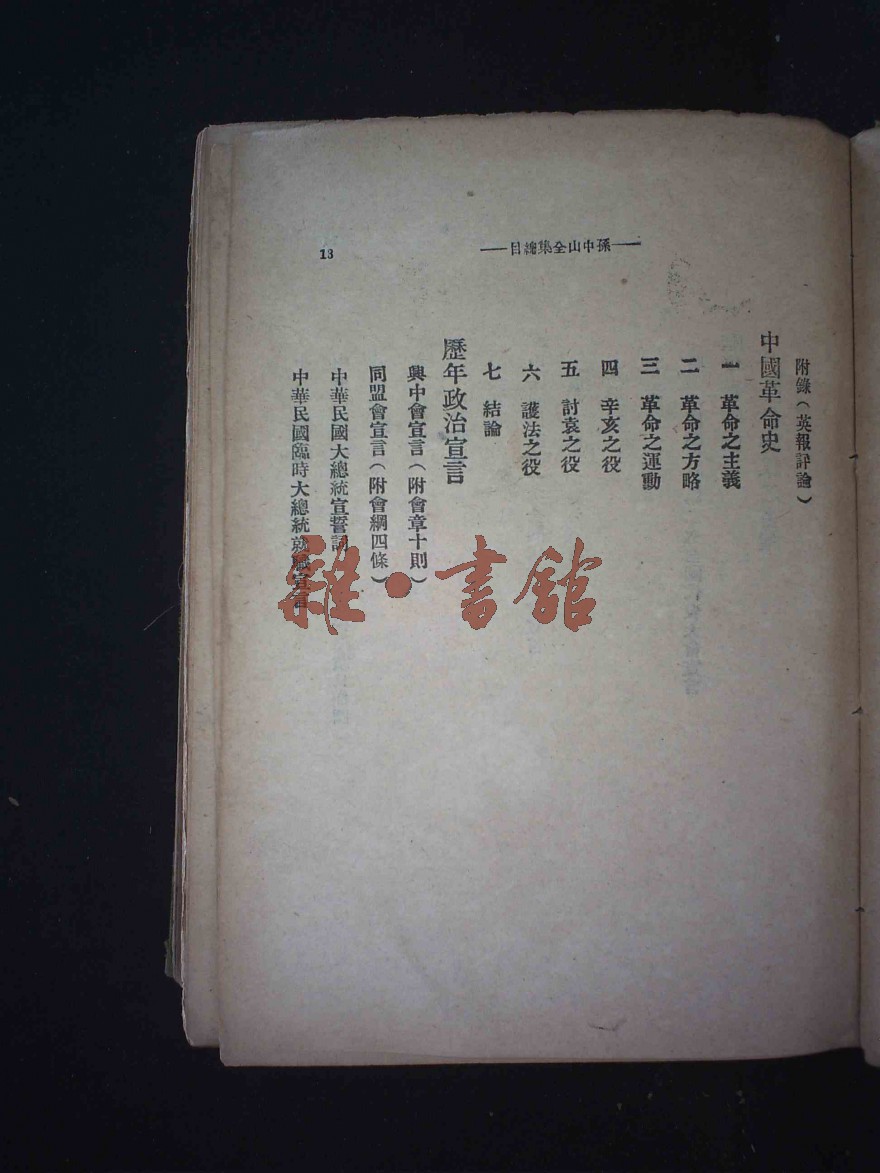 ——孫中山全集總目——
13
附錄(英報評論)
中國革命史
一 革命之主義
二 革命之方略
三 革命之運動
四 辛亥之役
五 討袁之役
六 護法之役
七 結論
歷年政治宣言
興中會宣言(附會章十則)
同盟會宣言(附會綱四條)
中華民國大總統宣誓詞
中華民國臨時大總統就職宣言
雜·書館